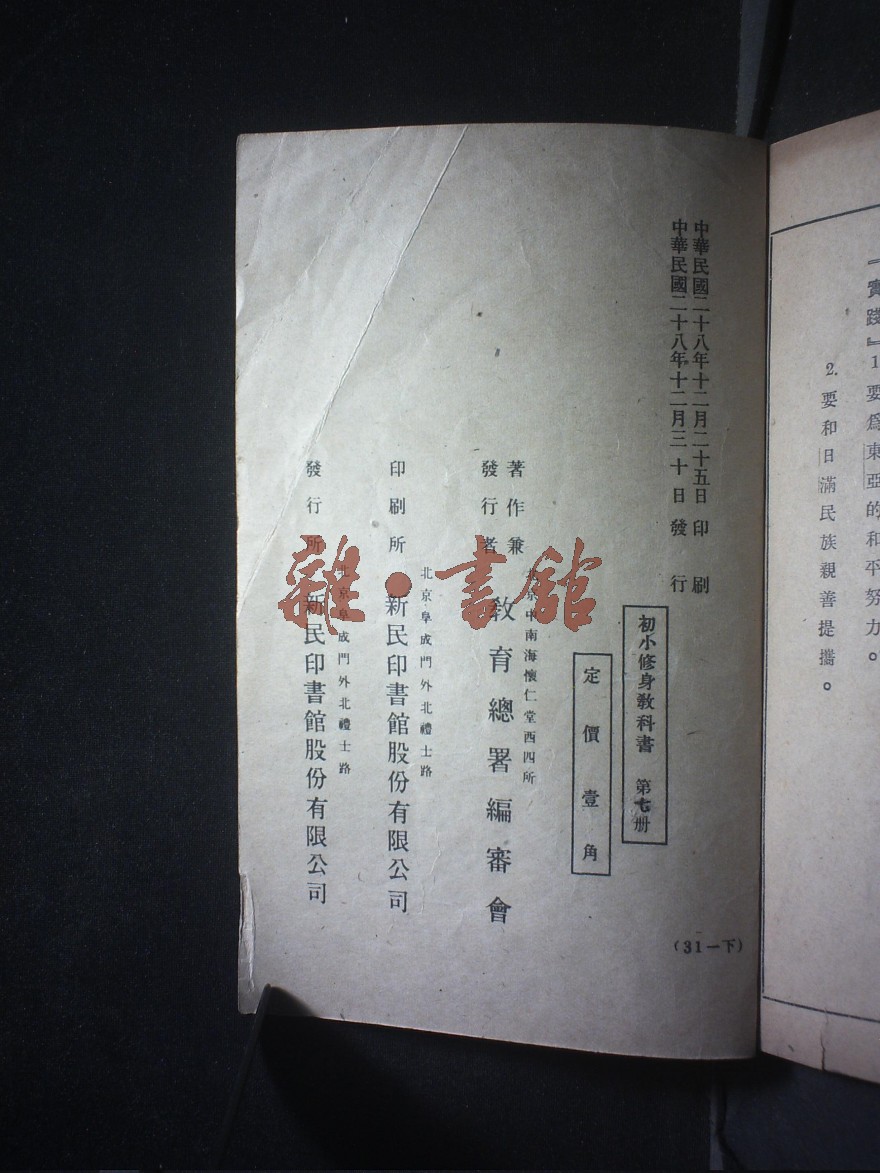 『實踐』1要爲東亞的和平努力。
2.要和日滿民族親善提攜。
中華民國二十八年十二月二十五日印刷
中華民國二十八年十二月三十日發行
初小修身教科書 第七册
定價壹角
著作兼
發行者
京中南海懷仁堂西四所
教育總署編審會
印刷所
北京阜成門外北禮士路
新民印書館股份有限公司
發行所
北京阜成門外北禮士路
新民印書館股份有限公司
(31一下)
雜·書館